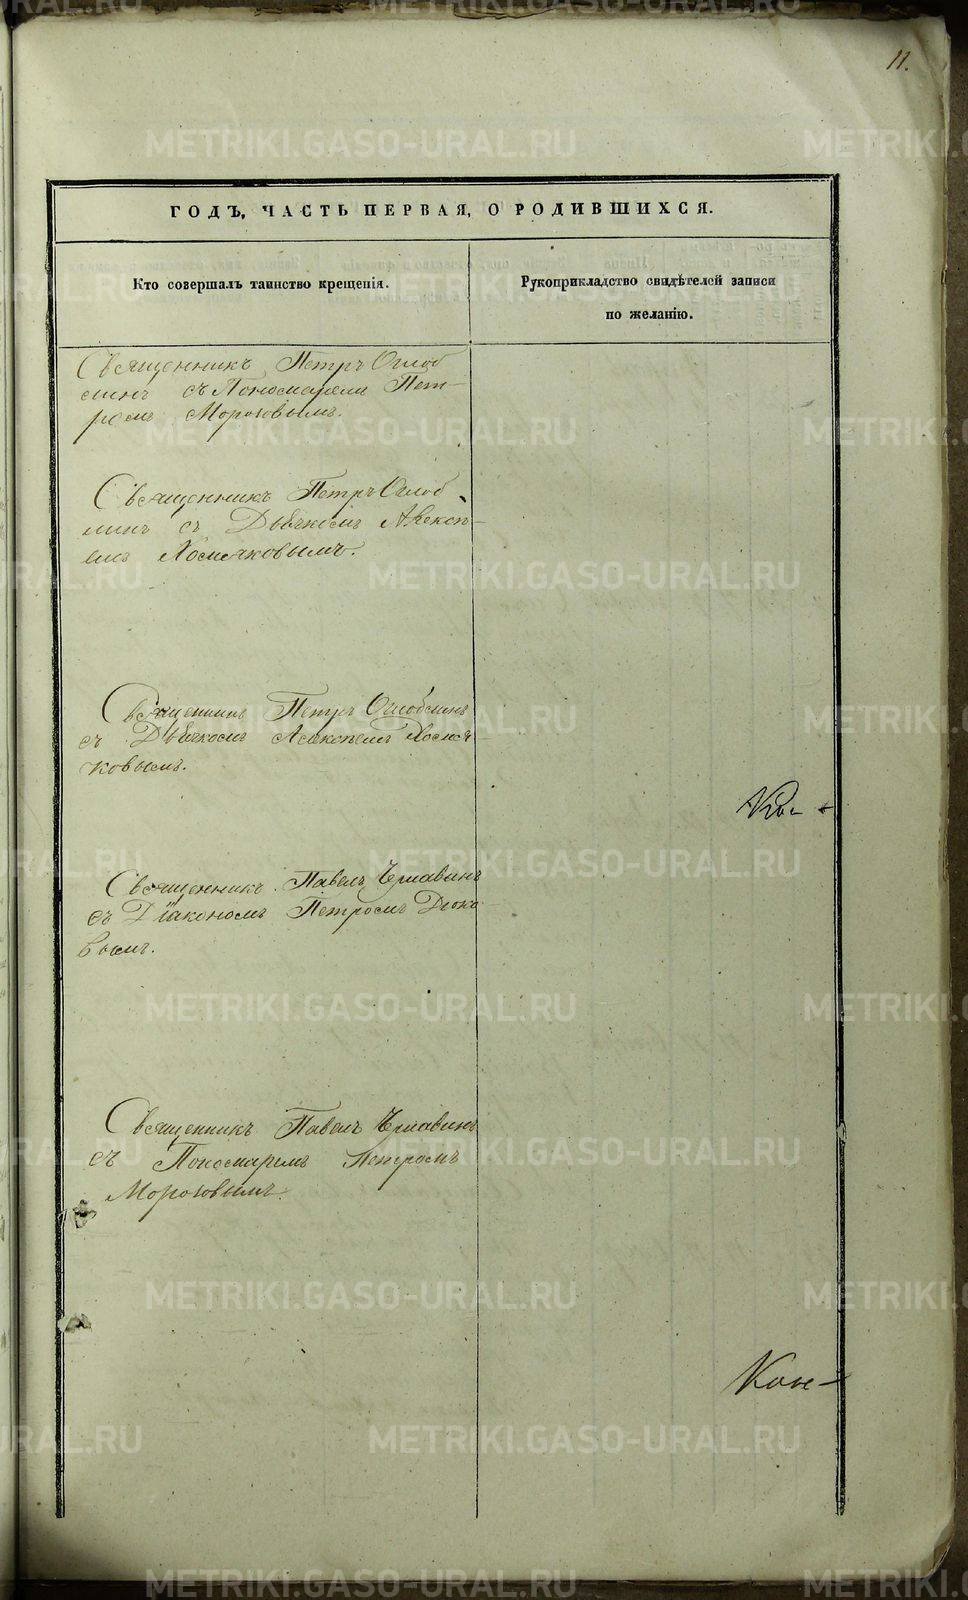 11.
ГОДЪ, ЧАСТЬ ПЕРВАЯ, О РОДИВШИХСЯ.
Кто совершалъ таинство крещенія.
Рукоприкладство свидѣтелей записи
по желанію.
Священникъ Петръ Оглоб
линъ съ Пономаремъ Пет-
ромъ Морозовымъ.
Священникъ Петръ Оглоб
линъ съ Дьячкомъ Алексѣ-
емъ Хомяковымъ.
Священникъ Петръ Оглоблинъ
съ Дьячкомъ Алексѣемъ Хомя
ковымъ.
Священникъ Павелъ Чернавинъ
съ Діакономъ Петромъ
вымъ.
Священникъ Павелъ Чернавинъ
съ Пономаремъ Петромъ
Морозовымъ.
METRIKI.GASO-URAL.RU